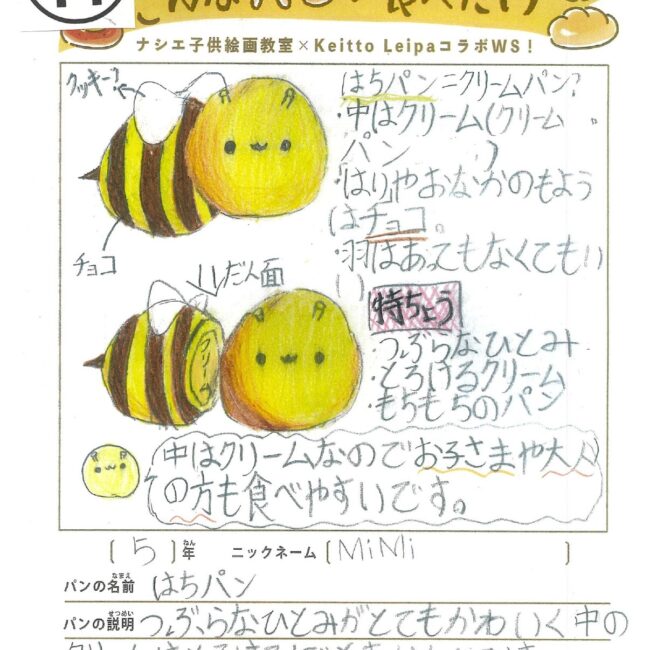 ナシエ子供絵画教室×Keitto LeipaコラボWS!
クッキー?
はちパン=クリームパン?
・中はクリーム(クリーム
パン )
・はりやおなかのもよう
はチョコ。
・羽はあってもなくてもい
い
チョコ
だん面
クリーム
特ちょう
・つぶらなひとみ
・とろけるクリーム
・もちもちのパン
中はクリームなのでお子さまや大人
の方も食べやすいです。
[5]年 ニックネーム[MiMi]
パンの名前 はちパン
パンの説明 つぶらなひとみがとてもかわいく中の